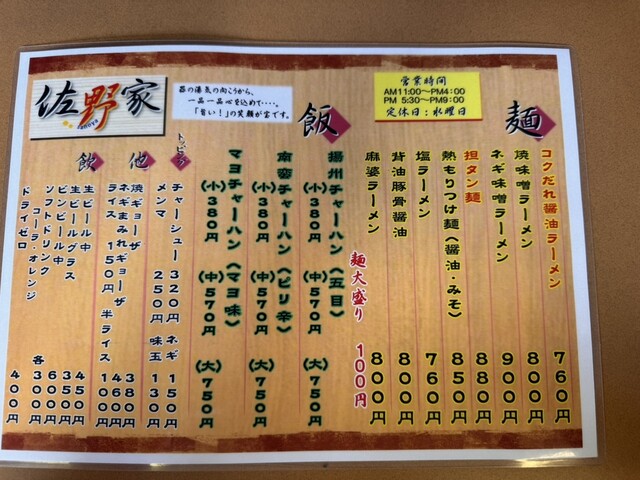 佐野家
sanoya
器の湯気の向こうから、
一品一品心を込めて・・・。
「旨い！」の笑顔が宝です。
営業時間
AM11:00～PM4:00
PM 5:30～PM9:00
定休日：水曜日
麺
コクだれ醤油ラーメン 760円
焼味噌ラーメン 800円
ネギ味噌ラーメン 900円
担タン麺 880円
熱もりつけ麺（醤油・みそ） 850円
塩ラーメン 760円
背油豚骨醤油 800円
麻婆ラーメン 800円
麺大盛り 100円
飯
揚州チャーハン（五目）
（小）380円 （中）570円 （大）750円
南蛮チャーハン（ピリ辛）
（小）380円 （中）570円 （大）750円
マヨチャーハン（マヨ味）
（小）380円 （中）570円 （大）750円
トッピング
チャーシュー 320円 ネギ 150円
メンマ 250円 味玉 130円
他
焼ギョーザ 380円
ネギまみれギョーザ 460円
ライス 150円 半ライス 100円
飲
生ビール中 450円
生ビールグラス 350円
ビンビール中 600円
ソフトドリンク 各300円
コーラ・オレンジ
ドライゼロ 400円